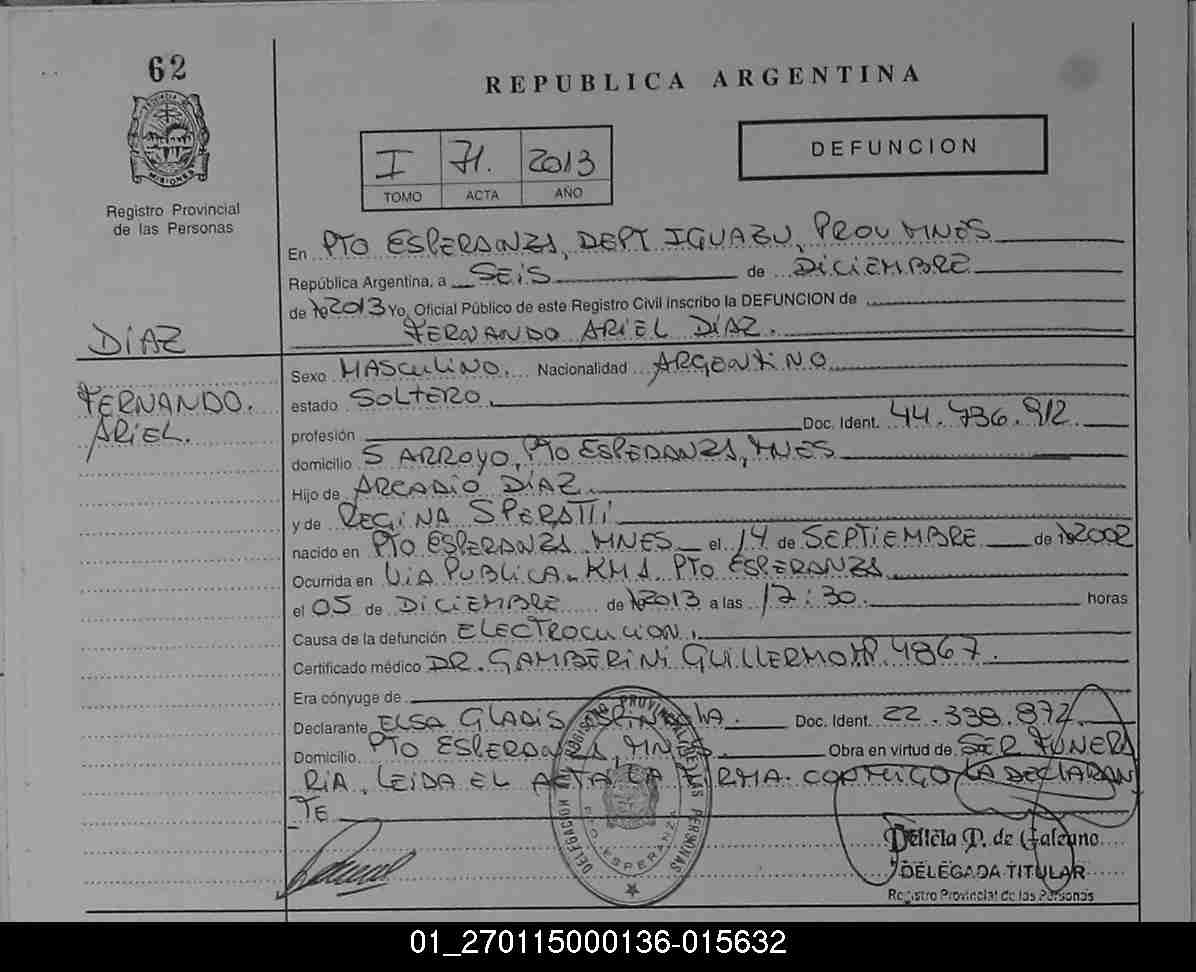 62
REPUBLICA ARGENTINA
PROVINCIA DE
MISIONES
Registro Provincial
de las Personas
I 71. 2013
TOMO ACTA AÑO
DEFUNCION
En PTO ESPERANZA, DEPT IGUAZU, PROV MNES
República Argentina, a SEIS de DICIEMBRE
de 2013 Yo, Oficial Público de este Registro Civil inscribo la DEFUNCION de
FERNANDO ARIEL DÍAZ.
DÍAZ
FERNANDO.
ARIEL.
Sexo MASCULINO. Nacionalidad ARGENTINO
estado SOLTERO.
profesión Doc. Ident. 44.736.912.
domicilio 5 ARROYO, PTO ESPERANZA, MNES
Hijo de ARCADIO DÍAZ
y de REGINA SPERATTI
nacido en PTO ESPERANZA MNES el 14 de SEPTIEMBRE de 2002
Ocurrida en VIA PUBLICA KM 1 PTO ESPERANZA
el 05 de DICIEMBRE de 2013 a las 17:30 horas
Causa de la defunción ELECTROCUCION.
Certificado médico DR. GAMBERINI GUILLERMO MP 4867.
Era cónyuge de
Declarante ELSA GLADIS Doc. Ident. 22.338.872
Domicilio PTO ESPERANZA, MNES Obra en virtud de SER FUNERA
RIA. LEIDA EL ACTA LA FIRMA CONMIGO LA DECLARAN
TE
DELEGACION REGISTRO PROVINCIAL DE LAS PERSONAS
PTO. ESPERANZA
Delicia P. de Galeano
DELEGADA TITULAR
Registro Provincial de las Personas
01_270115000136-015632